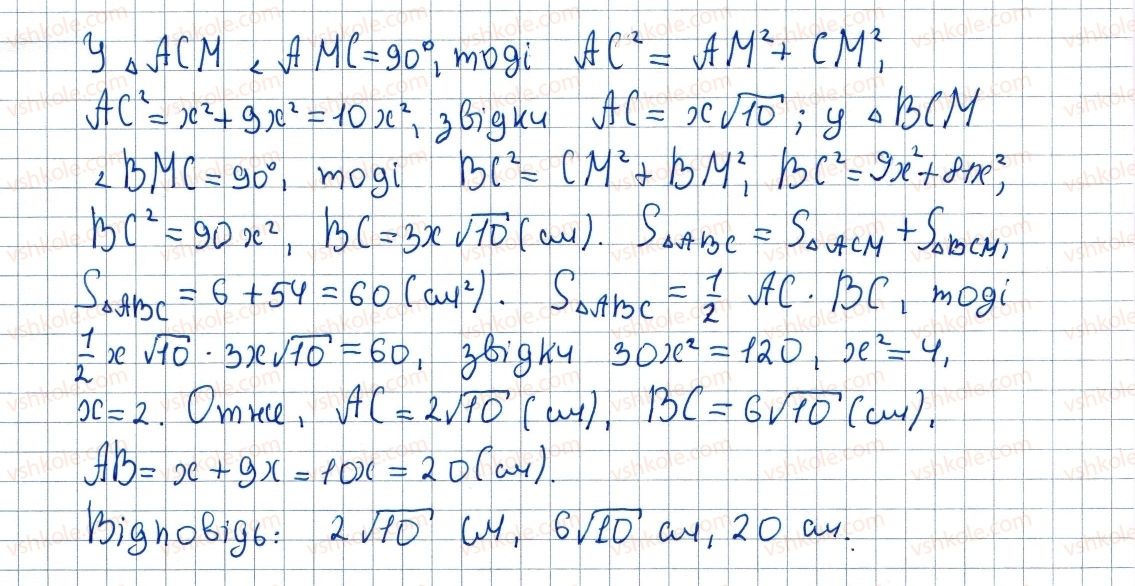 У △ACM ∠AMC=90°, тоді AC² = AM² + CM²,
AC² = x² + 9x² = 10x², звідки AC = x√10; у △BCM
∠BMC=90°, тоді BC² = CM² + BM², BC² = 9x² + 81x²,
BC² = 90x², BC = 3x√10 (см). S△ABC = S△ACM + S△BCM,
S△ABC = 6 + 54 = 60 (см²). S△ABC = 1/2 AC · BC, тоді
1/2 x√10 · 3x√10 = 60, звідки 30x² = 120, x² = 4,
x = 2. Отже, AC = 2√10 (см), BC = 6√10 (см),
AB = x + 9x = 10x = 20 (см).
Відповідь: 2√10 см, 6√10 см, 20 см.